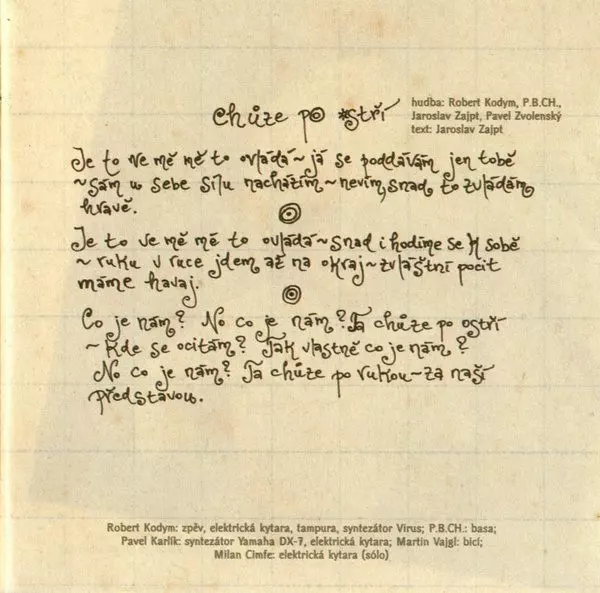 Chůze po *stří
hudba: Robert Kodym, P.B.CH.,
Jaroslav Zajpt, Pavel Zvolenský
text: Jaroslav Zajpt
Je to ve mě mě to ovládá~já se poddávám jen tobě
~sám u sebe sílu nacházím~nevím, snad to zvládám
hravě.
Je to ve mě mě to ovládá~snad i hodíme se k sobě
~ruku v ruce jdem až na okraj~zvláštní pocit
máme havaj.
Co je nám? No co je nám? Ta chůze po ostří
~Kde se ocitám? Tak vlastně co je nám?
No co je nám? Ta chůze po rukou~za naší
představou.
Robert Kodym: zpěv, elektrická kytara, tampura, syntezátor Virus; P.B.CH.: basa;
Pavel Karlík: syntezátor Yamaha DX-7, elektrická kytara; Martin Vajgl: bicí;
Milan Cimfe: elektrická kytara (sólo)